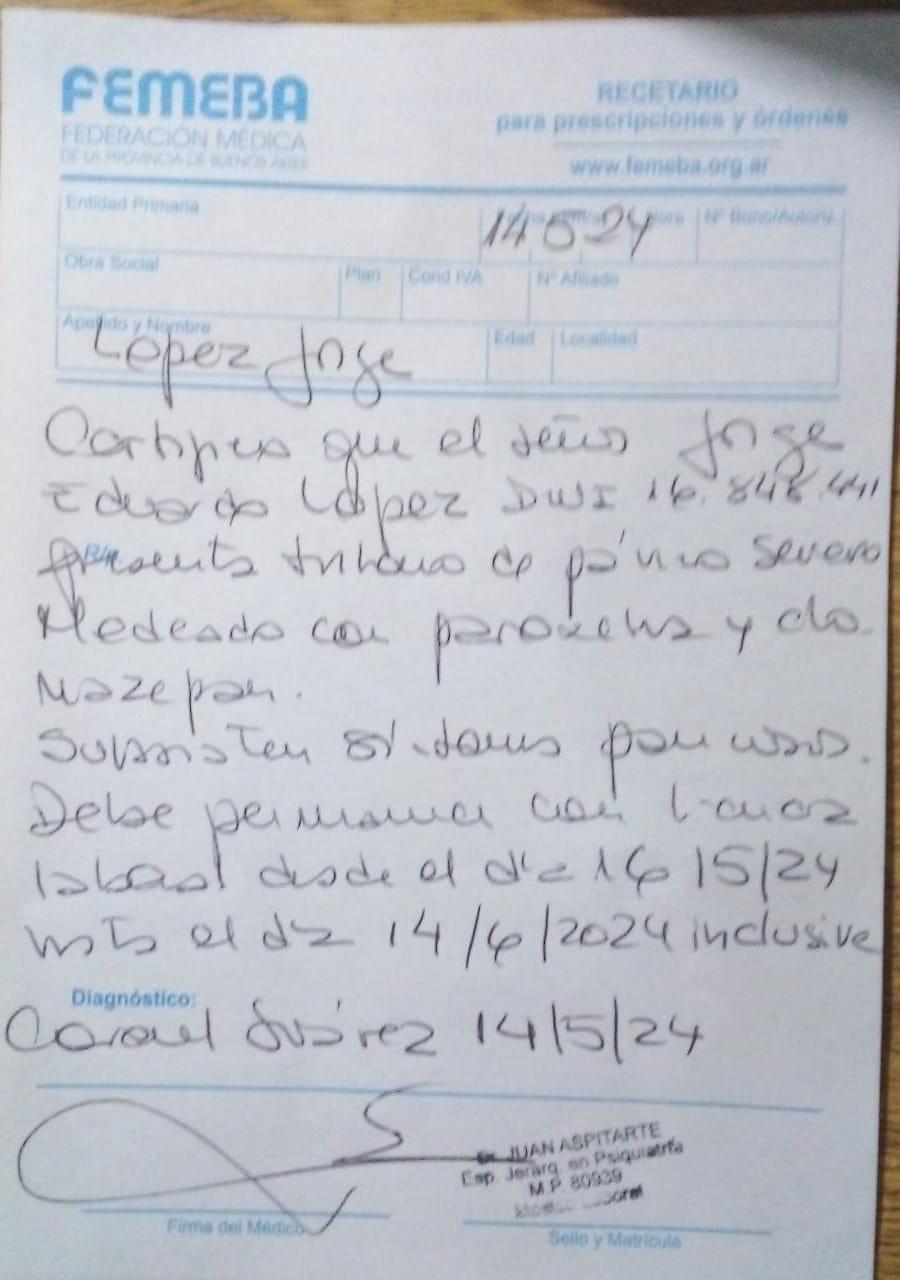 FEMEBA
FEDERACIÓN MÉDICA
DE LA PROVINCIA DE BUENOS AIRES
RECETARIO
para prescripciones y órdenes
www.femeba.org.ar
Entidad Primaria
14 5 24
Nº Bono/Autoriz.
Obra Social
Plan
Cond IVA
Nº Afiliado
Apellido y Nombre
Edad
Localidad
López Jorge
Certifico que el señor Jorge
Eduardo López DNI 16.848.441
presenta trastorno de pánico severo
Medicado con paroxetina y clo
nazepan.
Subsisten síntomas
Debe permanecer con licencia
laboral desde el día 16/5/24
hasta el día 14/6/2024 inclusive
Diagnóstico:
Coronel Suárez 14/5/24
Dr. JUAN ASPITARTE
Esp. Jerarq. en Psiquiatría
M.P. 80939
Laboral
Firma del Médico
Sello y Matrícula